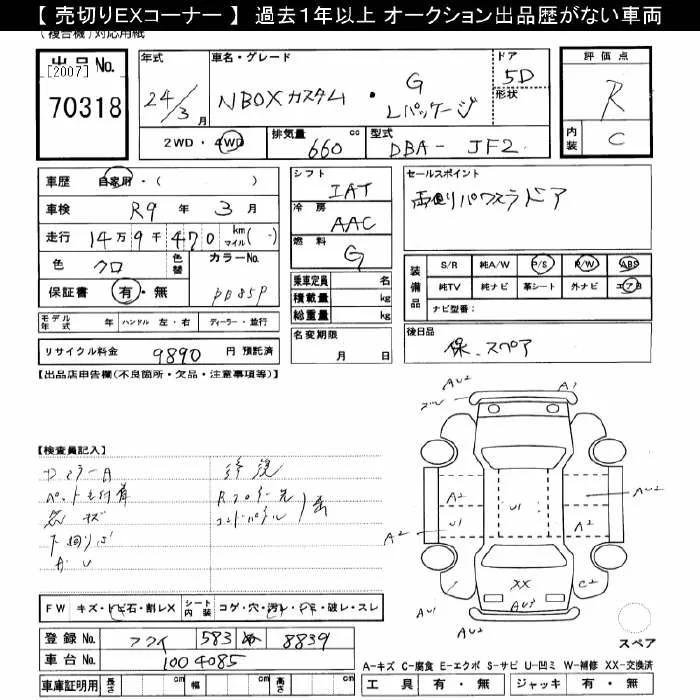 【 売切りEXコーナー 】 過去1年以上 オークション出品歴がない車両
(複合機)対応用紙
出品No.
[2007]
70318
年式
24/3月
車名・グレード
NBOXカスタム・G Lパッケージ
ドア
5D
形状
評価点
R
内装
C
2WD・4WD
排気量 660 cc
型式 DBA- JF2
車歴 自家用・( )
車検 R9年3月
走行 14万9千470 km マイル( )
色 クロ
色替
カラーNo.
保証書 有・無
シフト
IAT
冷房
AAC
燃料
G
乗車定員 名
積載量 kg
総重量 kg
セールスポイント
両側パワスラドア
装備品
S/R 純A/W P/S P/W ABS
純TV 純ナビ 革シート 外ナビ エアB
ナビ型番:
モデル年式 年 ハンドル 左・右 ディーラー・並行
名変期限
月 日
後日品
保、スペア
リサイクル料金 9890 円 預託済
【出品店申告欄(不良箇所・欠品・注意事項等)】
【検査員記入】
修復
AU2
A1
A2
A2
U1
U1
AU2
A2
XX
C2
AU3
AU1
AU2
FW キズ・トビ石・割レX シート内装 コゲ・穴・汚レ・ヤブ・破レ・スレ
登録No. フクイ 583 8839
車台No. 1004085
車庫証明用 長さ cm 幅 cm 高さ cm
スペア
A-キズ C-腐食 E-エクボ S-サビ U-凹ミ W-補修 XX-交換済
工具 有・無 ジャッキ 有・無